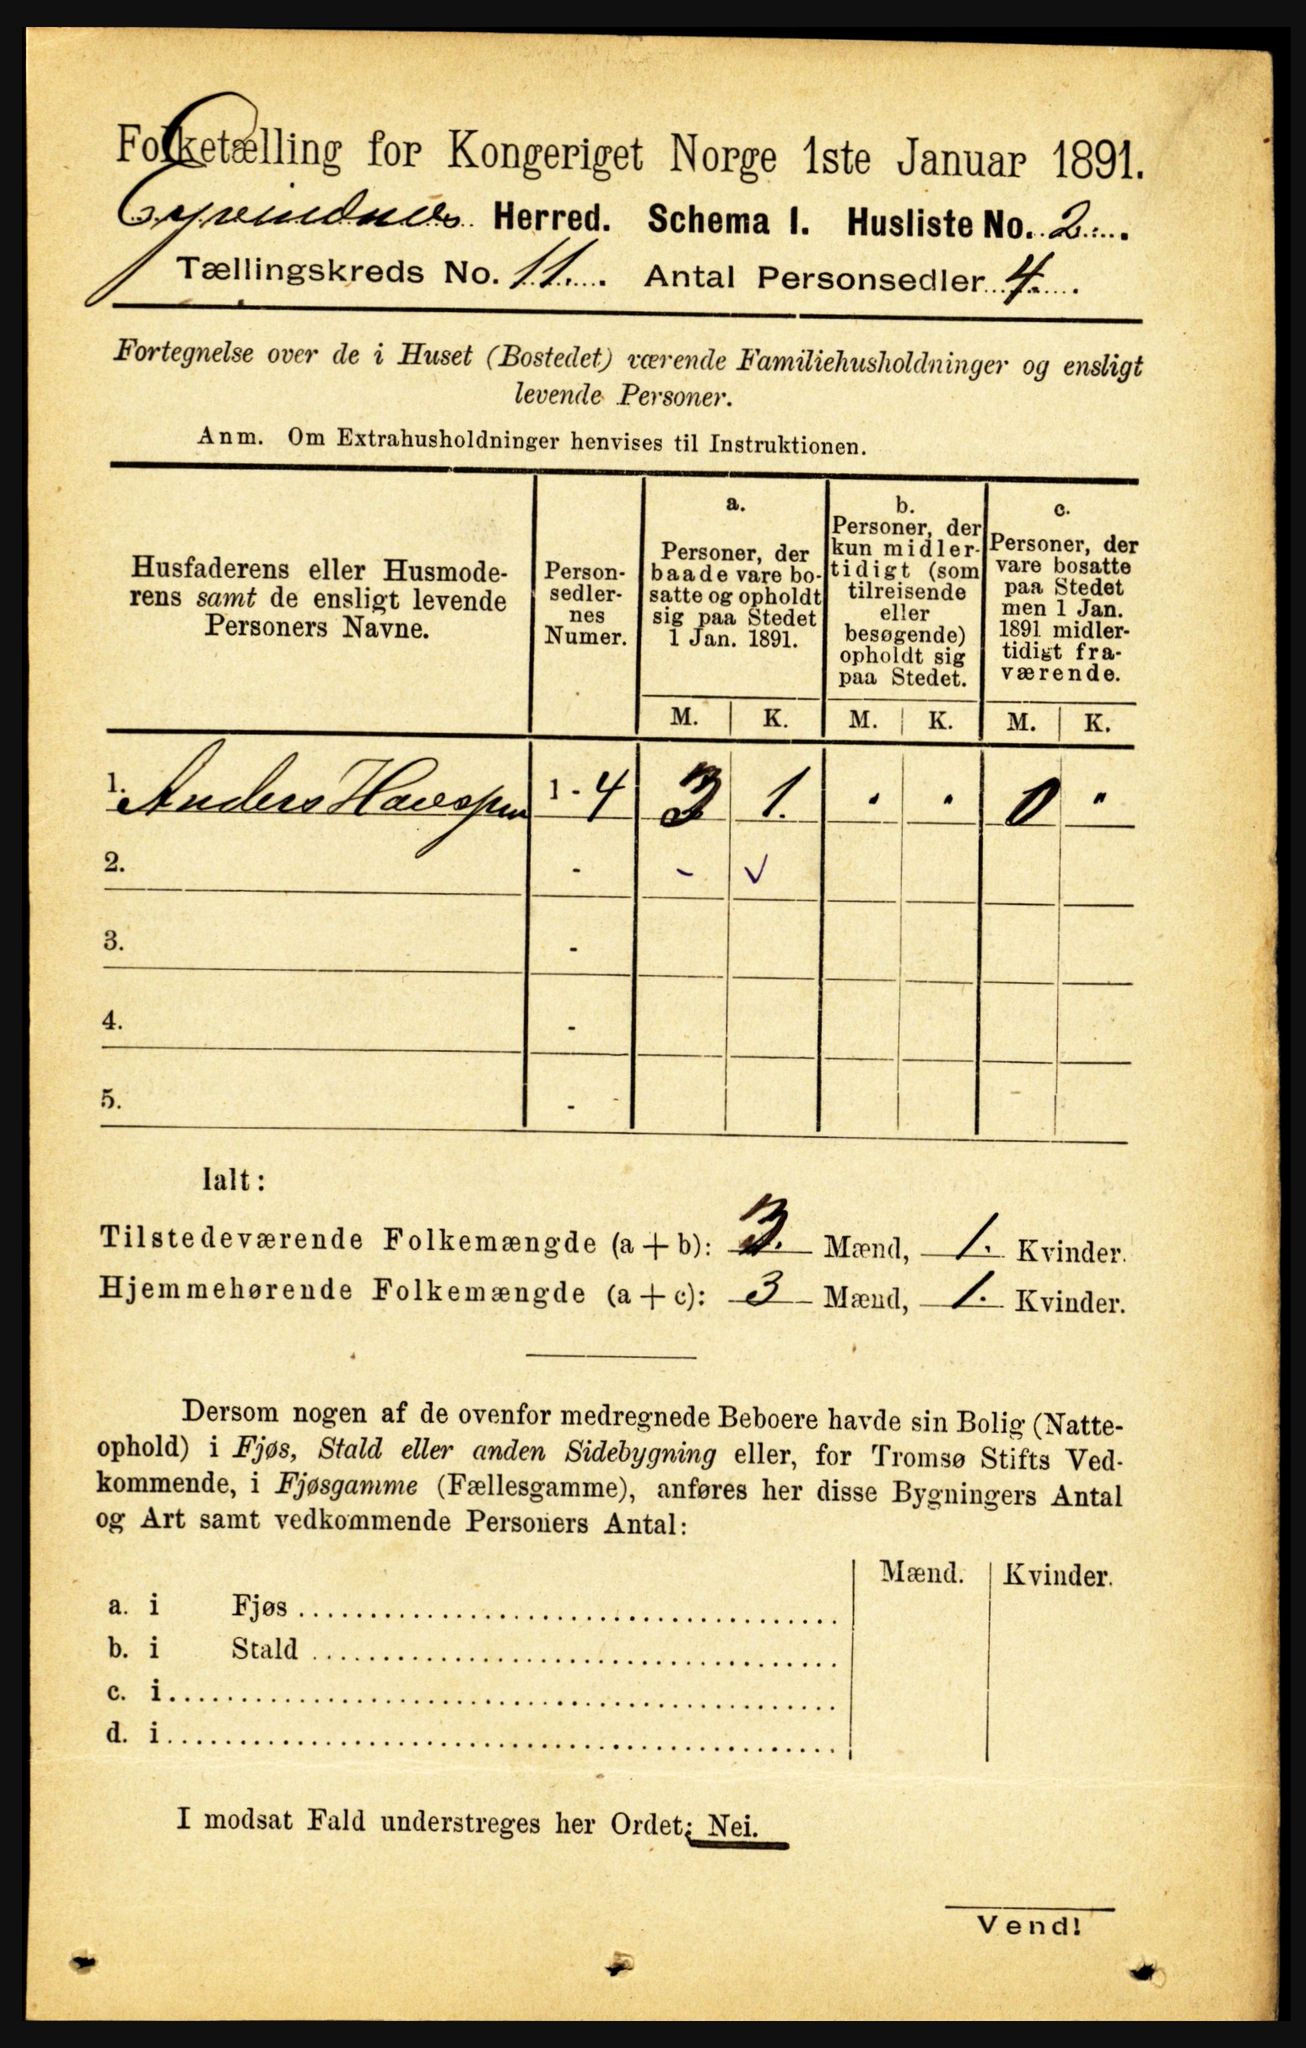 Folketælling for Kongeriget Norge 1ste Januar 1891.
Eyvindvik Herred. Schema I. Husliste No. 2.
Tællingskreds No. 11. Antal Personsedler 4.
Fortegnelse over de i Huset (Bostedet) værende Familiehusholdninger og ensligt
levende Personer.
Anm. Om Extrahusholdninger henvises til Instruktionen.
Husfaderens eller Husmode-
rens samt de ensligt levende
Personers Navne.
Person-
sedler-
nes
Numer.
a.
Personer, der
baade vare bo-
satte og opholdt
sig paa Stedet
1 Jan. 1891.
b.
Personer, der
kun midler-
tidigt (som
tilreisende
eller
besøgende)
opholdt sig
paa Stedet.
c.
Personer, der
vare bosatte
paa Stedet
men 1 Jan.
1891 midler-
tidigt fra-
værende.
M. K. M. K. M. K.
1. Anders 1 - 4 3 1. . . 0 "
2. - - ✓
3. -
4. -
5. -
Ialt:
Tilstedeværende Folkemængde (a + b): 3. Mænd, 1. Kvinder.
Hjemmehørende Folkemængde (a + c): 3 Mænd, 1. Kvinder.
Dersom nogen af de ovenfor medregnede Beboere havde sin Bolig (Natte-
ophold) i Fjøs, Stald eller anden Sidebygning eller, for Tromsø Stifts Ved-
kommende, i Fjøsgamme (Fællesgamme), anføres her disse Bygningers Antal
og Art samt vedkommende Personers Antal:
Mænd. Kvinder.
a. i Fjøs
b. i Stald
c. i
d. i
I modsat Fald understreges her Ordet: Nei.
Vend!